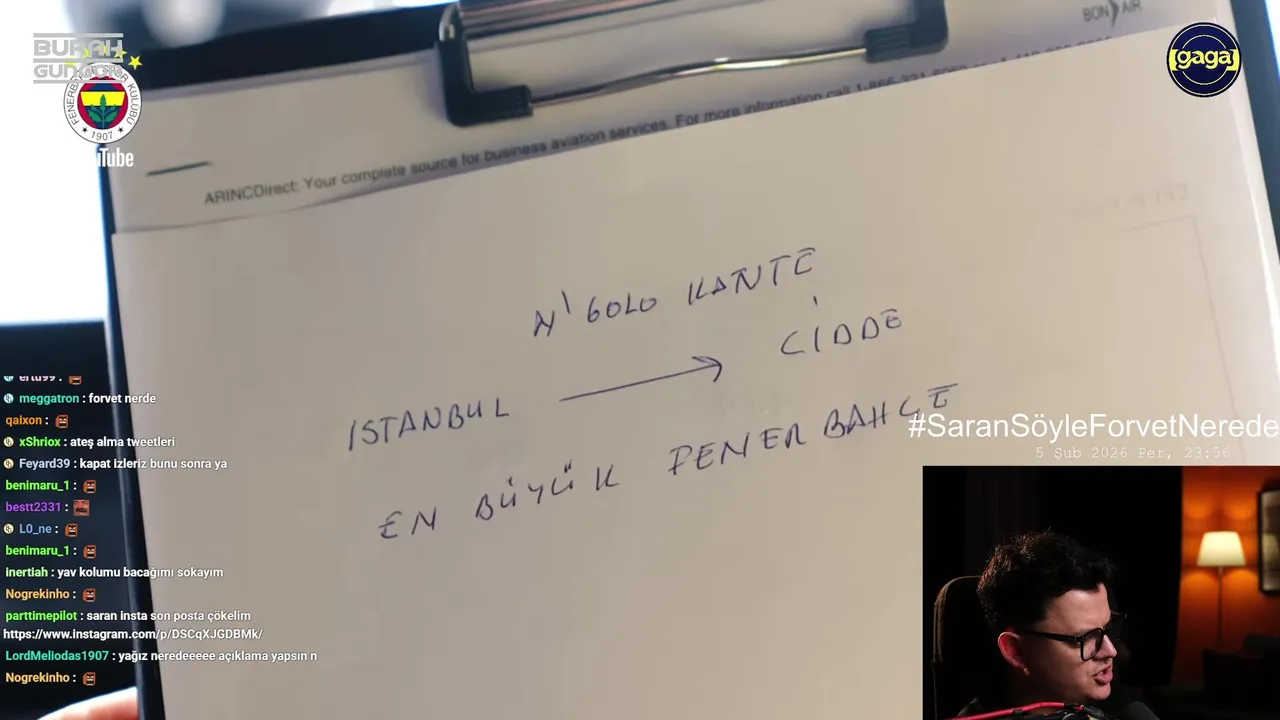 BURAH
GUNGOR
FENERBAHÇE SPOR KULUBU
1907
YouTube
gaga
BON AIR
ARINCDirect: Your complete source for business aviation services. For more information call
N'GOLO KANTE
İSTANBUL → CİDDE
EN BÜYÜK FENERBAHÇE
#SaranSöyleForvetNerede
5 Şub 2026 Per, 23:56
ertu99 :
meggatron : forvet nerde
qaixon :
xShriox : ateş alma tweetleri
Feyard39 : kapat izleriz bunu sonra ya
benimaru_1 :
bestt2331 :
L0_ne :
benimaru_1 :
inertiah : yav kolumu bacağımı sokayım
Nogrekinho :
parttimepilot : saran insta son posta çökelim
https://www.instagram.com/p/DSCqXJGDBMk/
LordMeliodas1907 : yağız neredeeeee açıklama yapsın n
Nogrekinho :